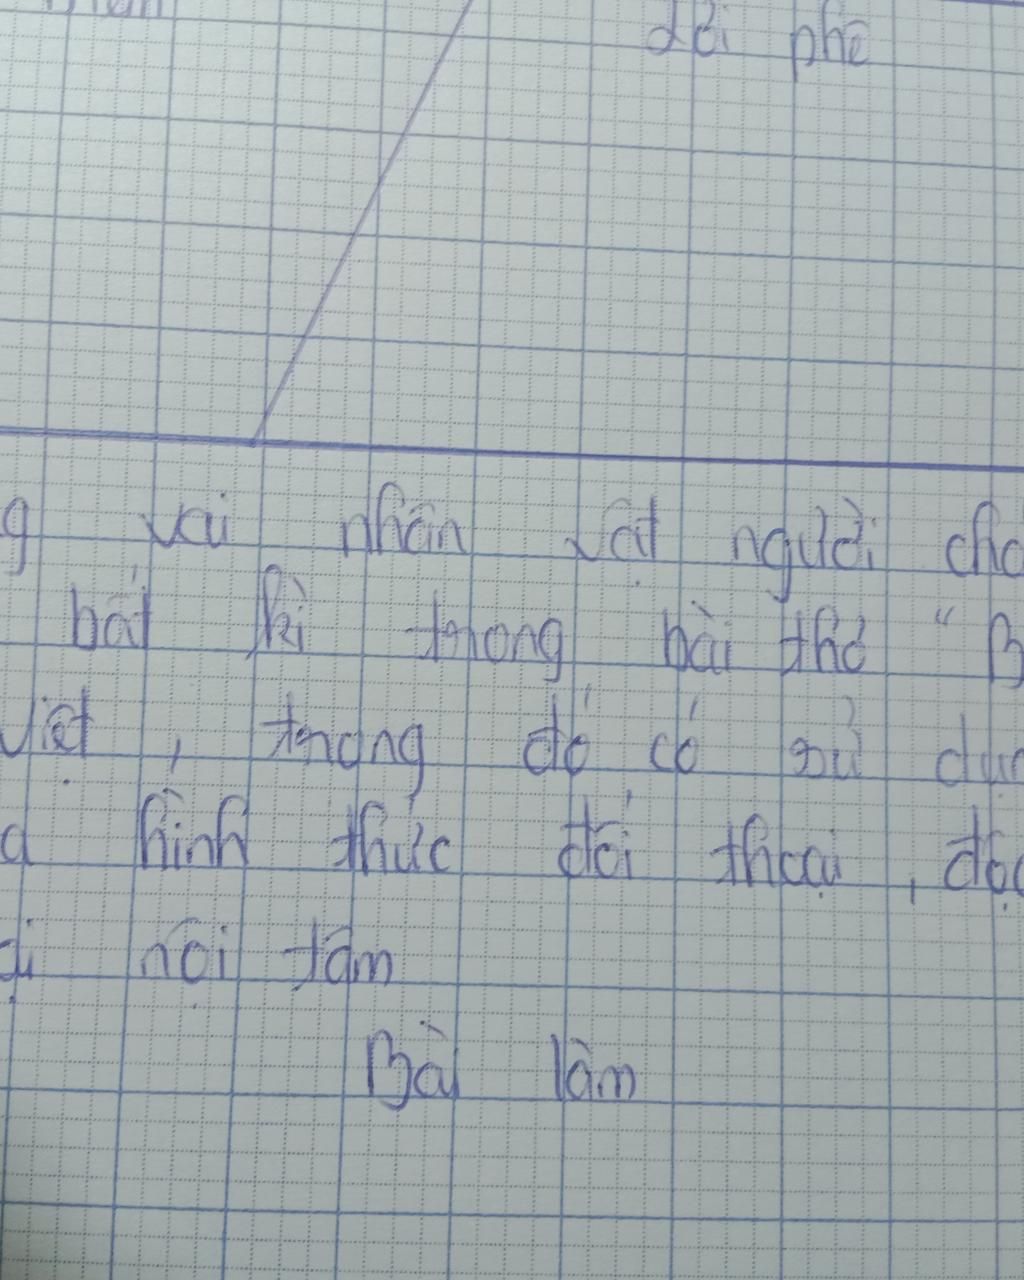 dôi phê
g vai nhân vật người chá
bất kì trong bài thơ " B
Việt , trong đó có sử dụn
a hình thức đối thoại , độc
ại nội tâm
Bài làm